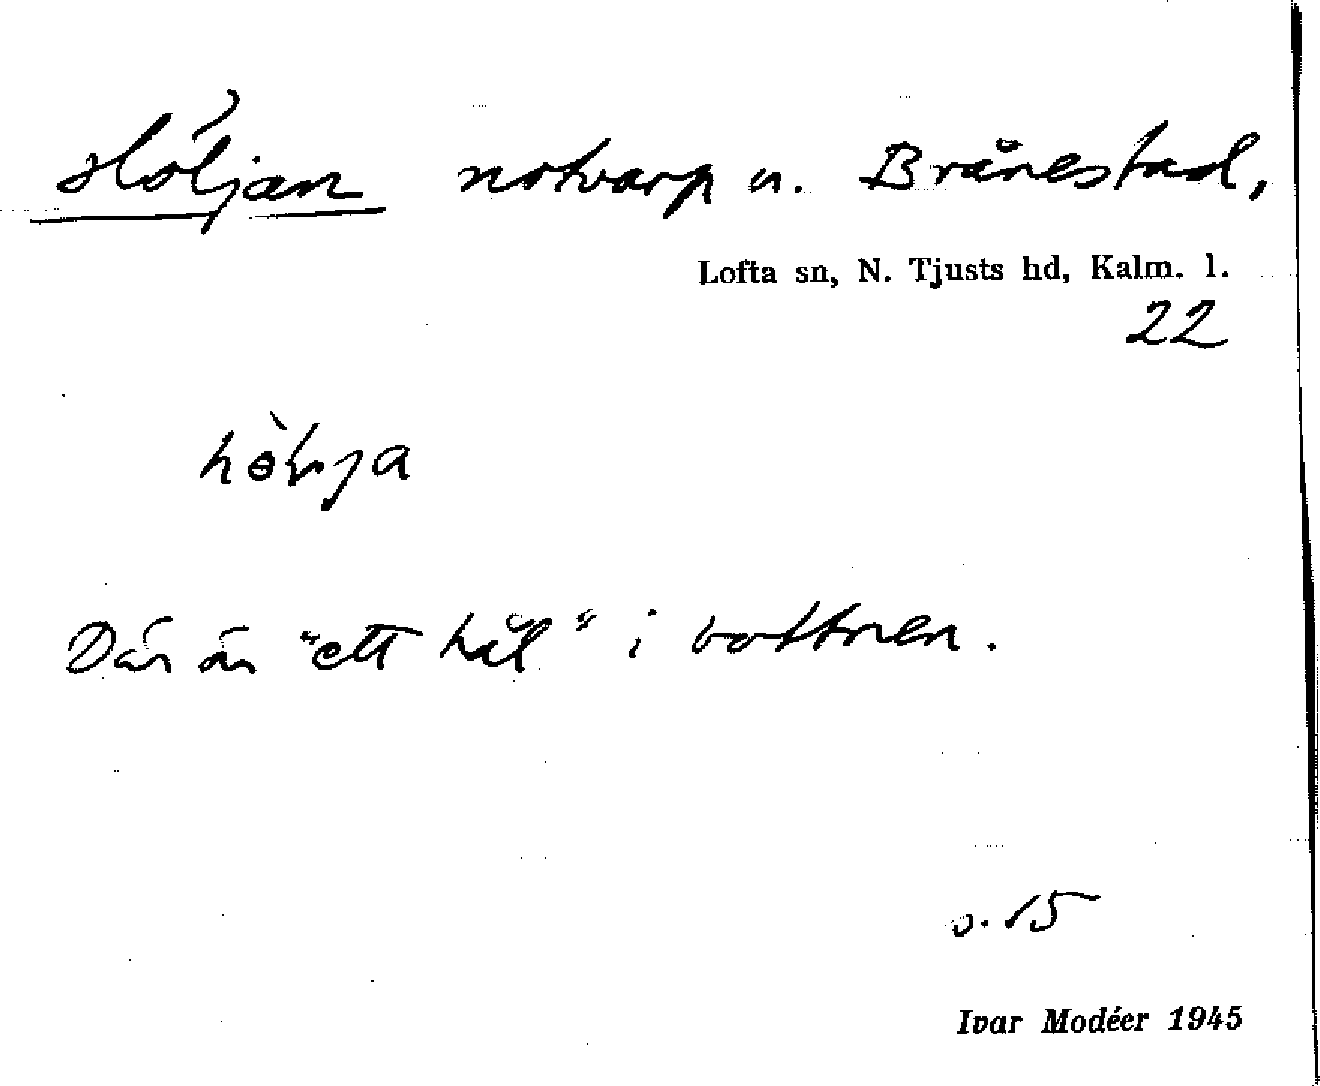 Höljan notvarp u. Brånestad,
Lofta sn, N. Tjusts hd, Kalm. l.
22
Där är "ett hål" i bottnen.
o. 15
Ivar Modéer 1945